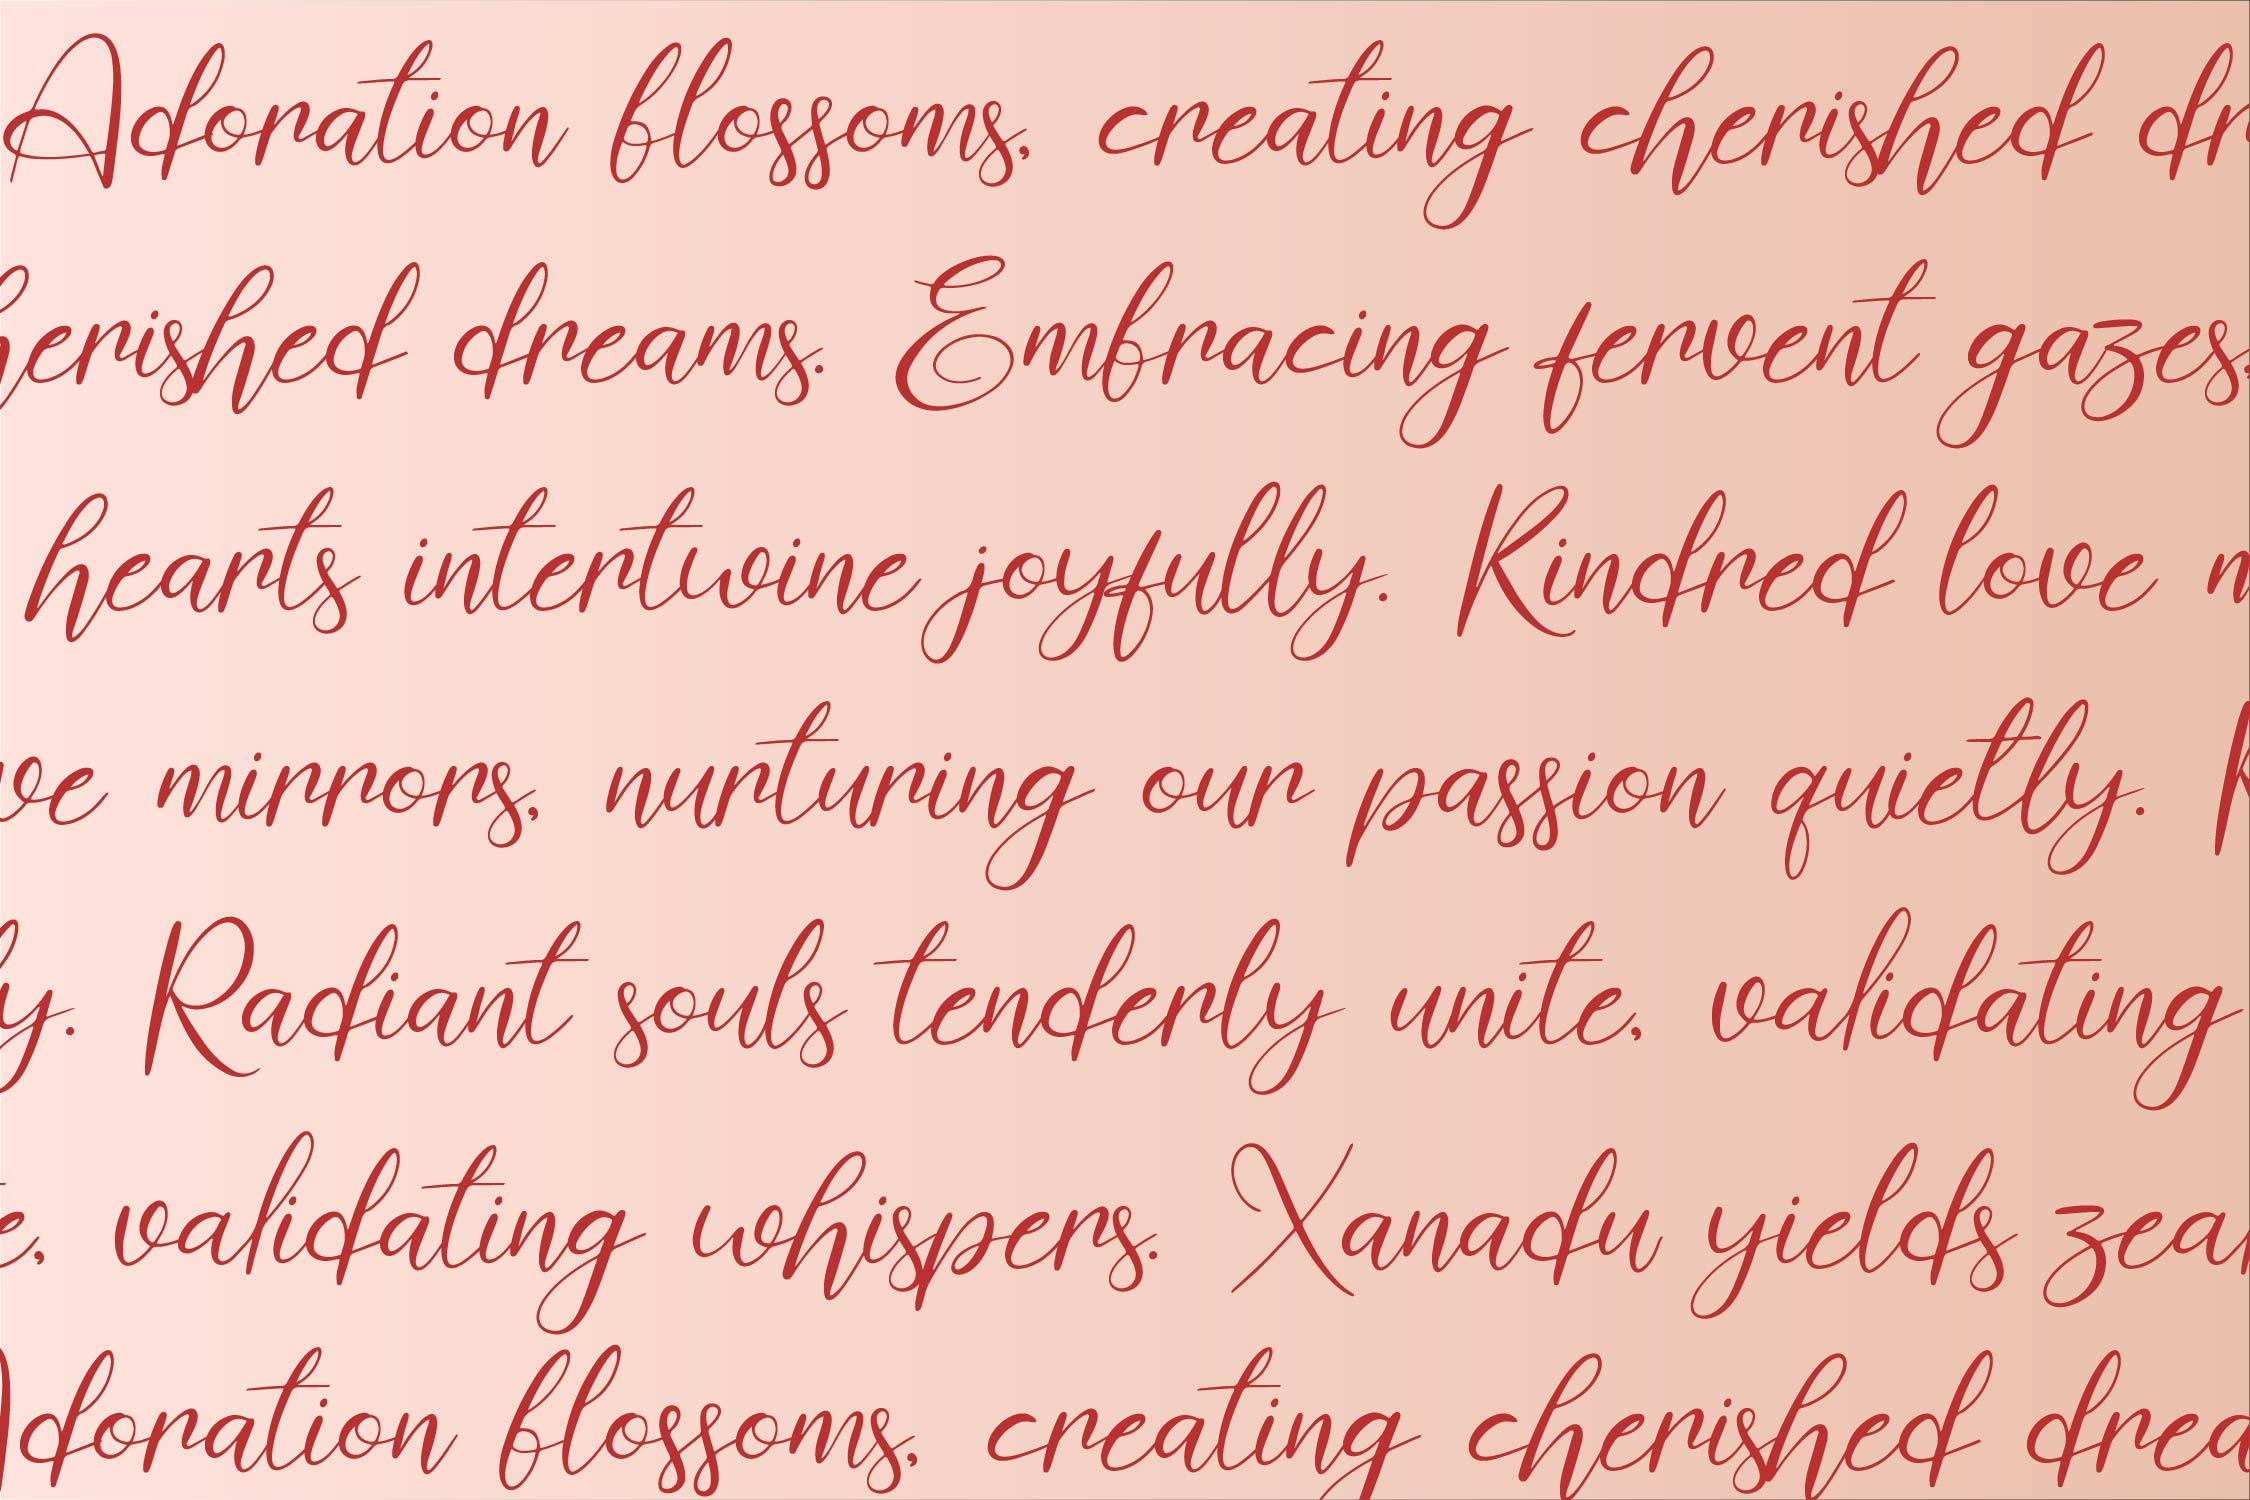 Adoration blossoms, creating cherished dr
herished dreams. Embracing fervent gazes,
hearts intertwine joyfully. Kindred love m
ve mirrors, nurturing our passion quietly. R
ly. Radiant souls tenderly unite, validating
e, validating whispers. Xanadu yields zeal
Adoration blossoms, creating cherished drea